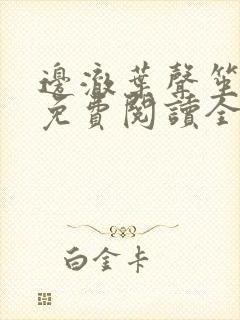 邊澈葉聲笙
免費閱讀全
白金卡